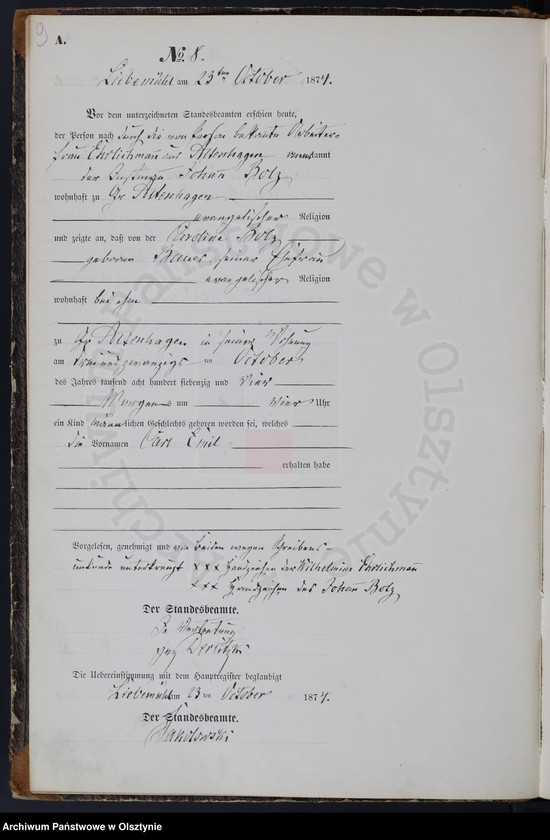 9
A.
No. 8.
Liebemühl am 23ten October 1874.
Vor dem unterzeichneten Standesbeamten erschien heute,
der Person nach durch die von Person bekannte Arbeiter-
frau Ehrlichmann aus Altenhagen anerkannt
der Instmann Johann Bolz
wohnhaft zu Gr. Altenhagen
evangelischer Religion
und zeigte an, daß von der Caroline Bolz
geboren seiner Ehefrau
evangelischer Religion
wohnhaft bei ihm
zu Gr. Altenhagen in seiner Wohnung
am drei und zwanzigsten October
des Jahres tausend acht hundert siebenzig und vier
Morgens um vier Uhr
ein Kind männlichen Geschlechts geboren worden sei, welches
die Vornamen Carl Emil
erhalten habe
Vorgelesen, genehmigt und von beiden wegen Schreibens-
unkunde unterkreuzt xxx Handzeichen der Wilhelmine Ehrlichmann
xxx Handzeichen des Johann Bolz
Der Standesbeamte.
In Vertretung
gez
Die Uebereinstimmung mit dem Hauptregister beglaubigt
Liebemühl am 23ten October 1874.
Der Standesbeamte.
Archiwum Państwowe w Olsztynie
Archiwum Państwowe w Olsztynie